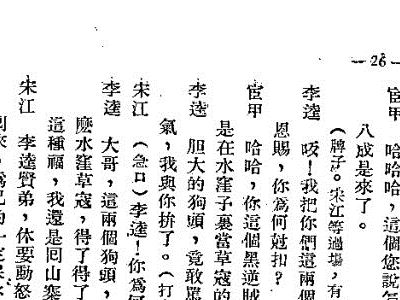 —26—
宦甲 哈哈哈，這個您説怎
八成是來了。
（牌子。宋江等過場，有
李逵 呔！我把你們這兩個
恩賜，你爲何尅扣？
宦甲 哈哈哈，你這個黑逆賊
是在水窪子裏當草寇的
李逵 胆大的狗頭，竟敢罵
氣，我與你拚了。（打
宋江 （急口）李逵！你爲何
李逵 大哥，這兩個狗頭，
麽水窪草寇，得了得了
這種福，我還是囘山寨
宋江 李逵賢弟，休要動怒